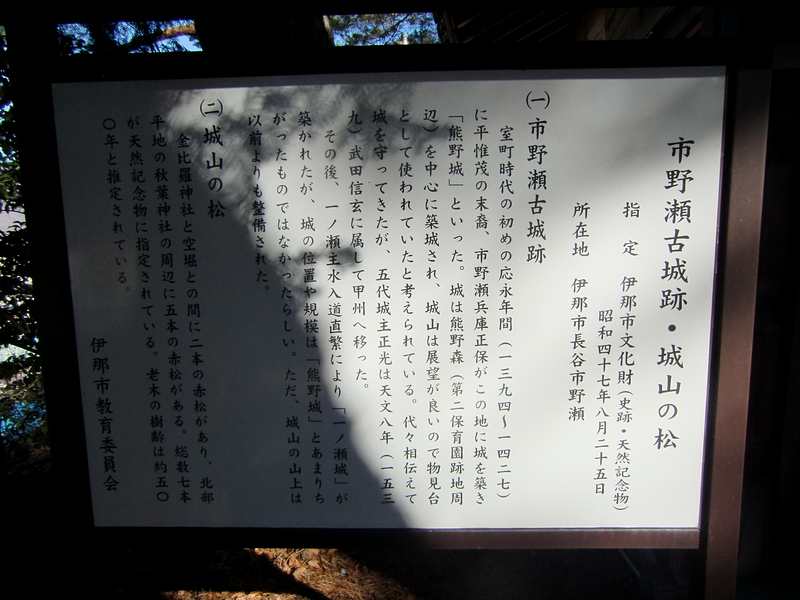 市野瀬古城跡・城山の松
指定　伊那市文化財（史跡・天然記念物）
昭和四十七年八月二十五日
所在地　伊那市長谷市野瀬
㈠市野瀬古城跡
室町時代の初めの応永年間（一三九四～一四二七）
に平惟茂の末裔、市野瀬兵庫正保がこの地に城を築き
「熊野城」といった。城は熊野森（第二保育園跡地周
辺）を中心に築城され、城山は展望が良いので物見台
として使われていたと考えられている。代々相伝えて
城を守ってきたが、五代城主正光は天文八年（一五三
九）武田信玄に属して甲州へ移った。
その後、一ノ瀬主水入道直繁により「一ノ瀬城」が
築かれたが、城の位置や規模は「熊野城」とあまりち
がったものではなかったらしい。ただ、城山の山上は
以前よりも整備された。
㈡城山の松
金比羅神社と空堀との間に二本の赤松があり、北部
平地の秋葉神社の周辺に五本の赤松がある。総数七本
が天然記念物に指定されている。老木の樹齢は約五〇
〇年と推定されている。
伊那市教育委員会